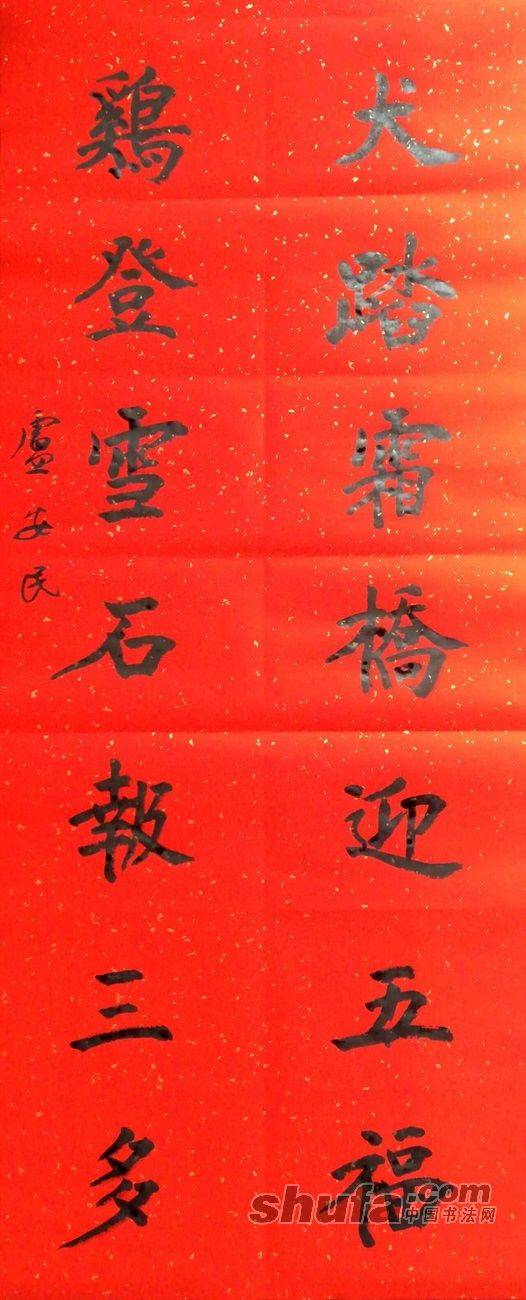 犬踏霜橋迎五福
鷄登雪石報三多
盧安民
shufa.com
中国书法网